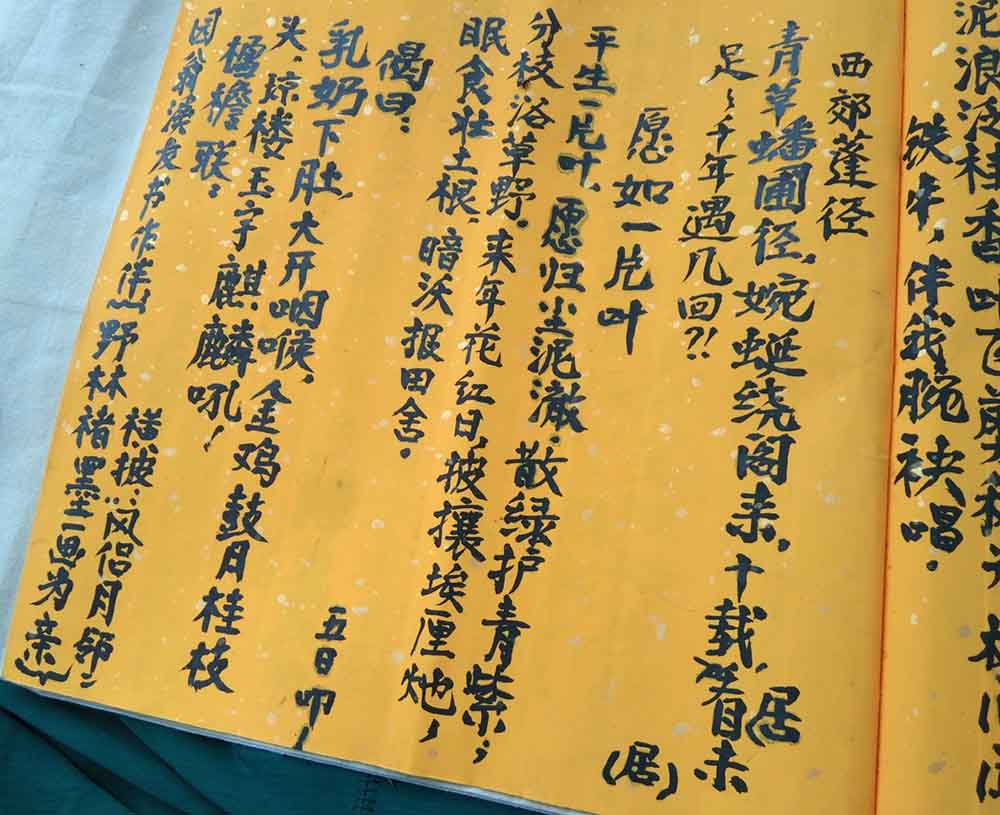 泥浪浮桂香叶飞
铁年,伴我腕袂唱。
西郊蓬径
青草蟠圃径,婉蜒绕阁来。十载,居
足,千年遇几回?!
(居)
愿如一片叶
平生一片叶,愿归尘泥澈。散绿护青紫;
分枝浴草野。来年花红日,披攘埃厘灺,
眠食壮土根。暗沃报田舍。
偈曰:
乳奶下肚,大开咽喉,金鸡鼓月桂枝
头,琼楼玉宇麒麟吼!
五日叩
楹檐联:
横披:风侣月邻
因翁漢友书作伴 山野林褚墨一画为亲